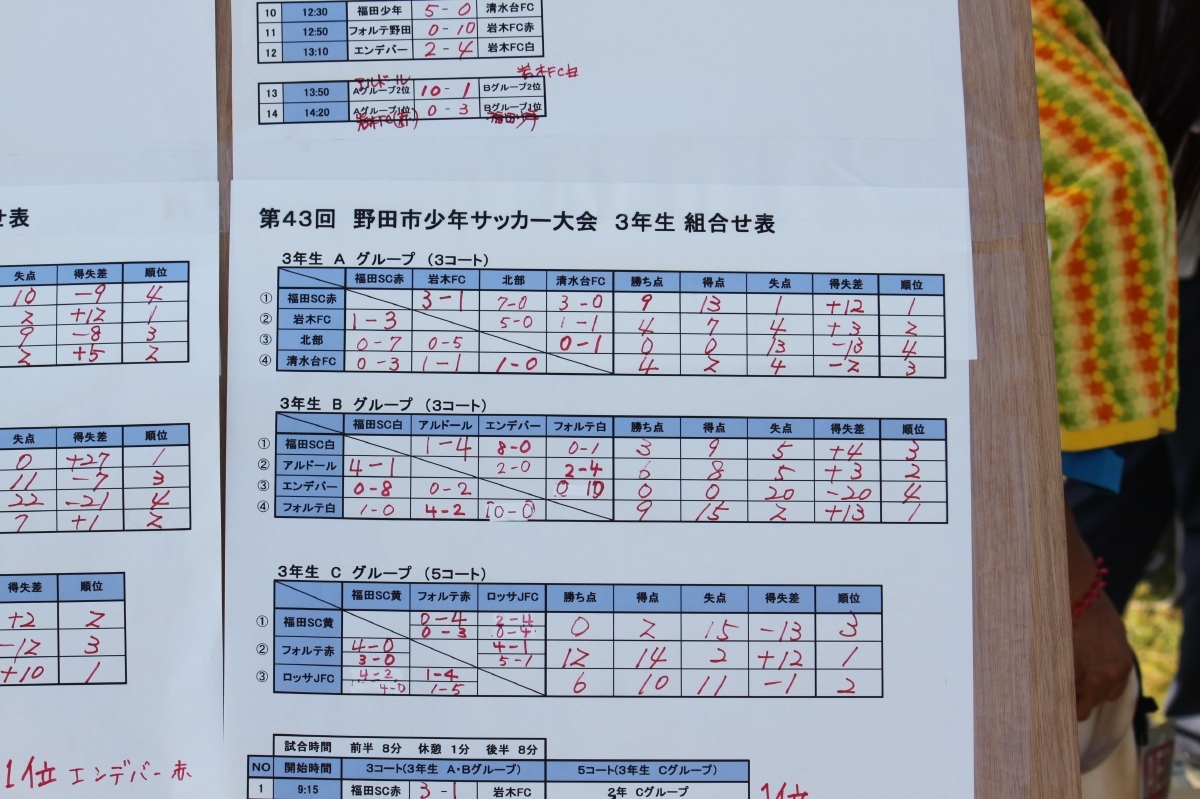 10 12:30 福田少年 5-0 清水台FC
11 12:50 フォルテ野田 0-10 岩木FC赤
12 13:10 エンデバー 2-4 岩木FC白
アルドール 岩木FC白
13 13:50 Aグループ2位 10-1 Bグループ2位
14 14:20 Aグループ1位 0-3 Bグループ1位
岩木FC(赤) 福田少年
せ表
失点 得失差 順位
10 -9 4
2 +12 1
9 -8 3
2 +5 2
失点 得失差 順位
0 +27 1
11 -7 3
22 -21 4
7 +1 2
得失差 順位
+2 2
-12 3
+10 1
1位 エンデバー 赤
第43回 野田市少年サッカー大会 3年生 組合せ表
3年生 A グループ (3コート)
福田SC赤 岩木FC 北部 清水台FC 勝ち点 得点 失点 得失差 順位
① 福田SC赤 3-1 7-0 3-0 9 13 1 +12 1
② 岩木FC 1-3 5-0 1-1 4 7 4 +3 2
③ 北部 0-7 0-5 0-1 0 0 13 -13 4
④ 清水台FC 0-3 1-1 1-0 4 2 4 -2 3
3年生 B グループ (3コート)
福田SC白 アルドール エンデバー フォルテ白 勝ち点 得点 失点 得失差 順位
① 福田SC白 1-4 8-0 0-1 3 9 5 +4 3
② アルドール 4-1 2-0 2-4 6 8 5 +3 2
③ エンデバー 0-8 0-2 0 10 0 0 20 -20 4
④ フォルテ白 1-0 4-2 10-0 9 15 2 +13 1
3年生 C グループ (5コート)
福田SC黄 フォルテ赤 ロッサJFC 勝ち点 得点 失点 得失差 順位
① 福田SC黄 0-4 2-4 0 2 15 -13 3
0-3 0-4
② フォルテ赤 4-0 4-1 12 14 2 +12 1
3-0 5-1
③ ロッサJFC 4-2 1-4 6 10 11 -1 2
4-0 1-5
試合時間 前半 8分 休憩 1分 後半 8分
NO 開始時間 3コート(3年生 A・Bグループ) 5コート(3年生 Cグループ)
1 9:15 福田SC赤 3-1 岩木FC 2年 Cグループ
1位